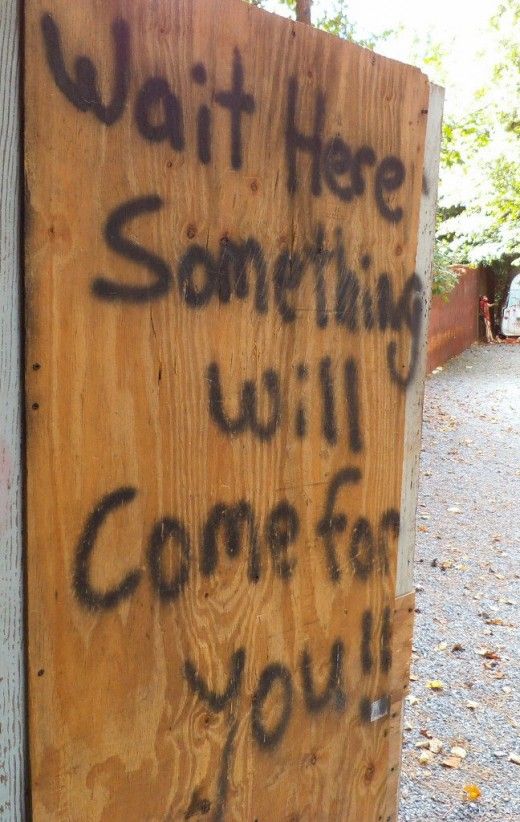 Wait Here
Something
will
Come for
you!!